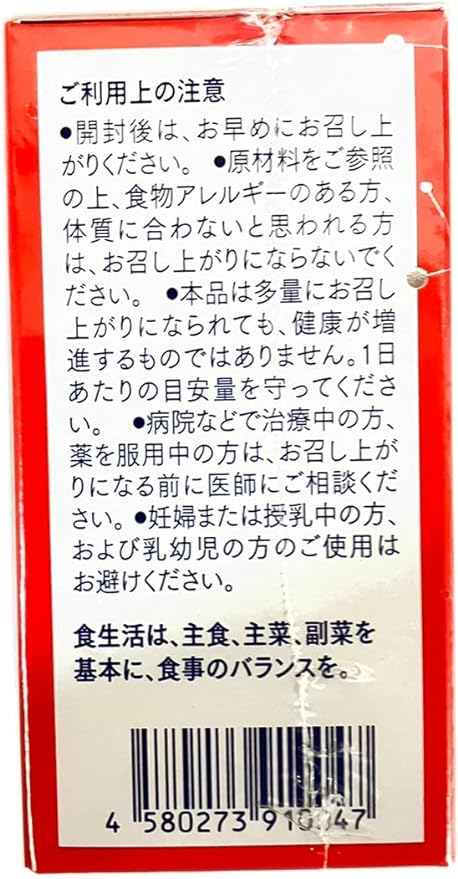 ご利用上の注意
●開封後は、お早めにお召し上
がりください。 ●原材料をご参照
の上、食物アレルギーのある方、
体質に合わないと思われる方
は、お召し上がりにならないでく
ださい。 ●本品は多量にお召し
上がりになられても、健康が増
進するものではありません。1日
あたりの目安量を守ってくださ
い。 ●病院などで治療中の方、
薬を服用中の方は、お召し上が
りになる前に医師にご相談くだ
さい。●妊婦または授乳中の方、
および乳幼児の方のご使用は
お避けください。
食生活は、主食、主菜、副菜を
基本に、食事のバランスを。
4 580273